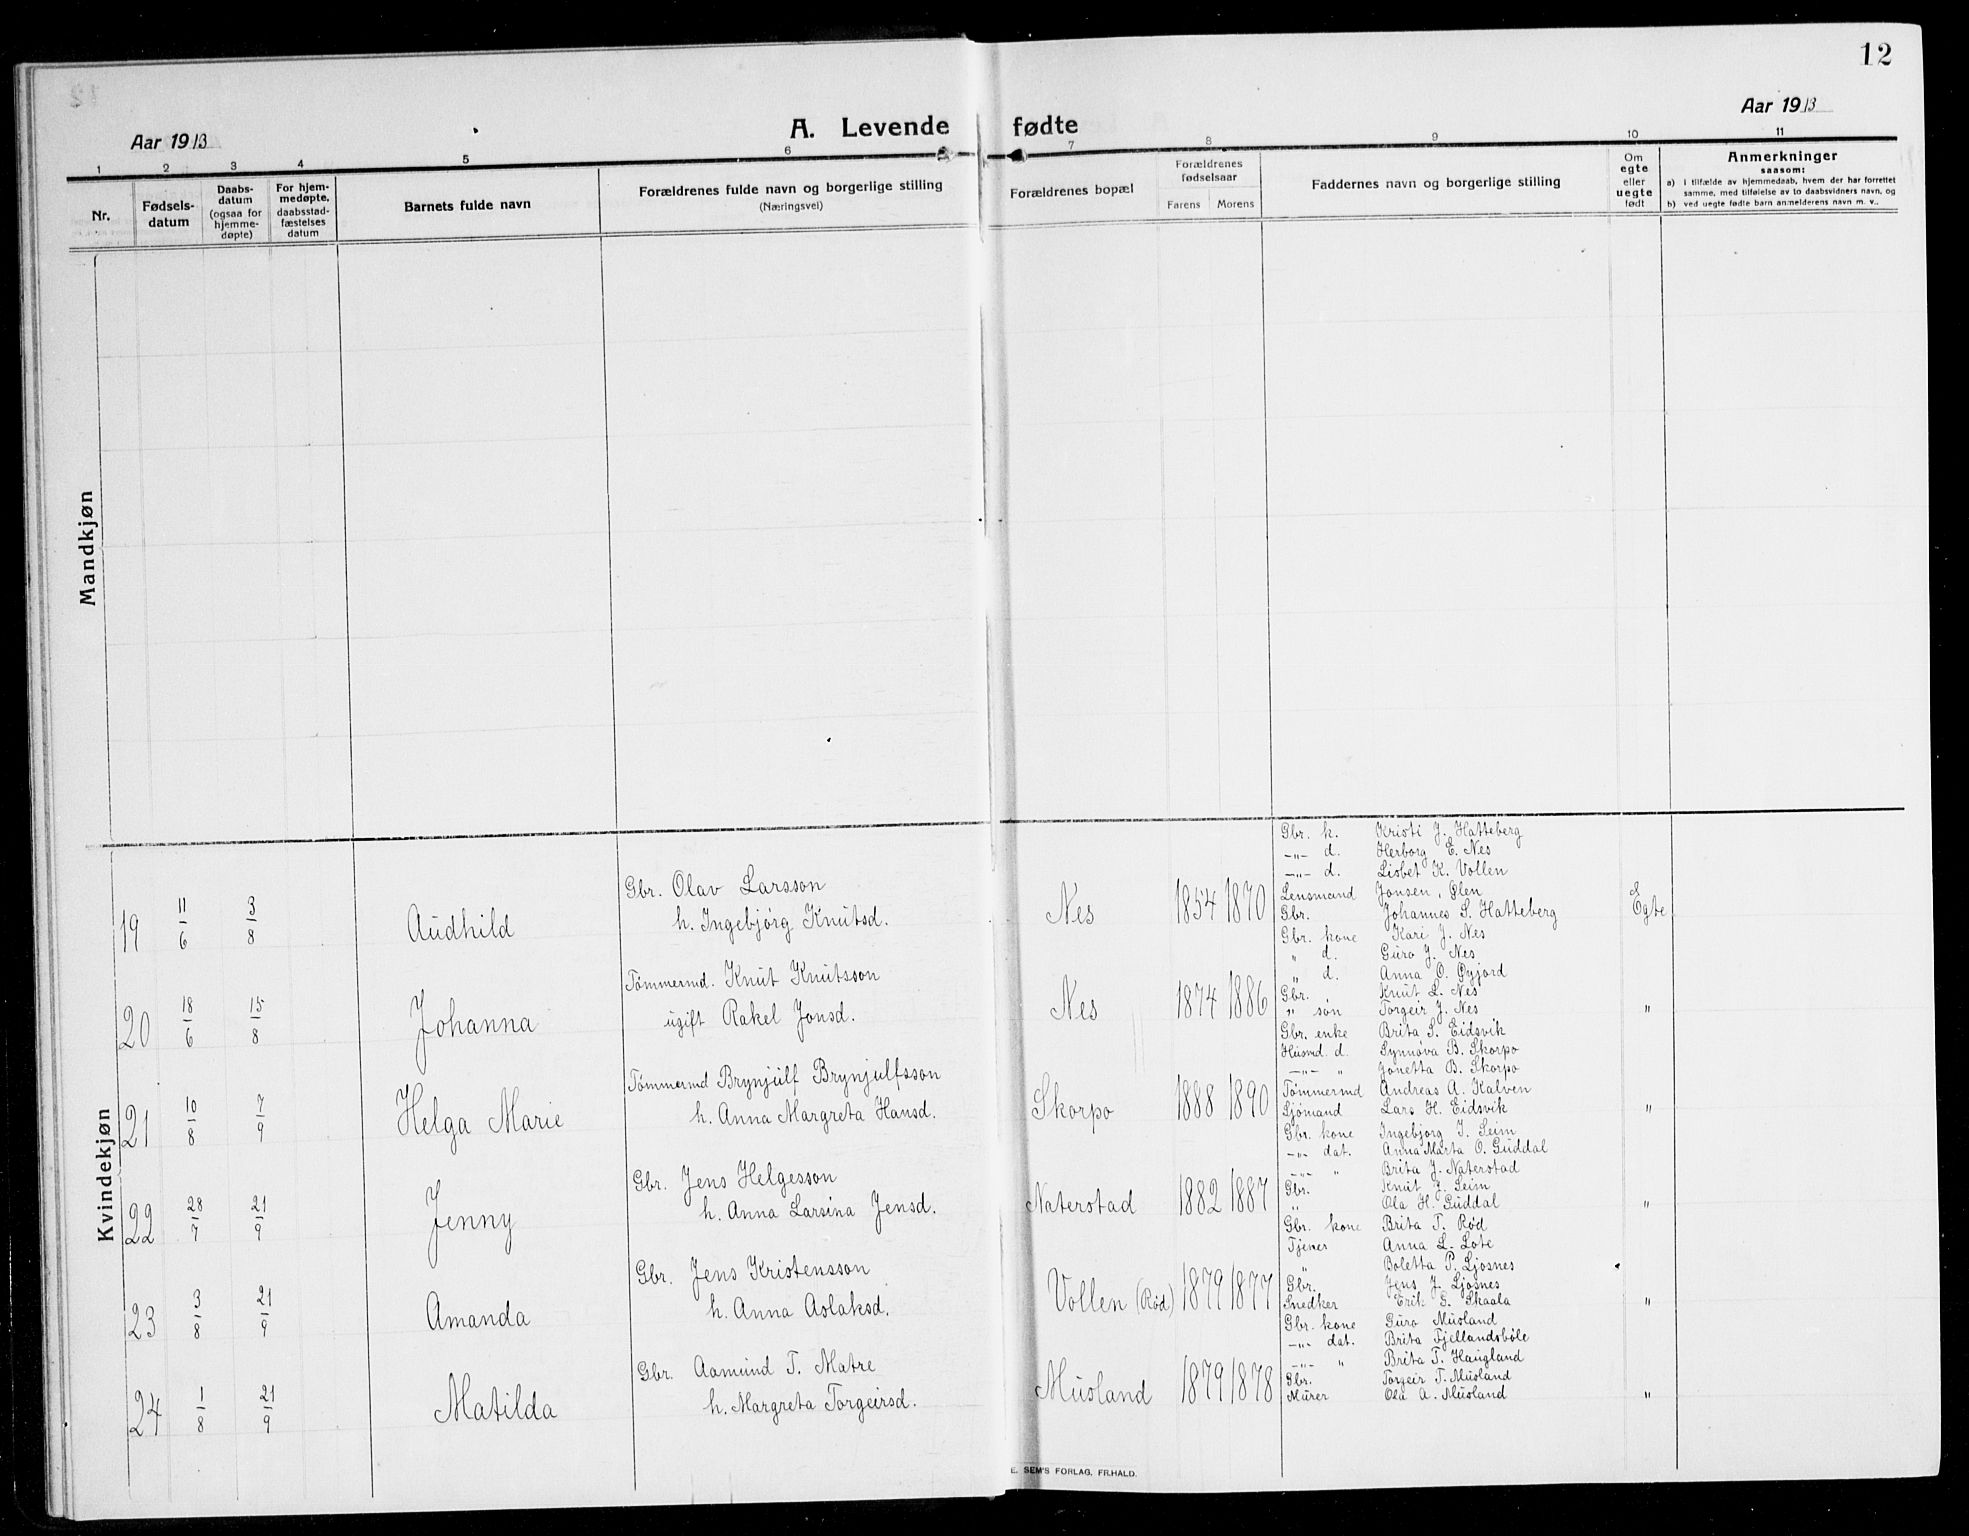 12
Aar 1913
A. Levende fødte
Aar 1913
1 2 3 4 5 6 7 8 9 10 11
Nr.
Fødsels-
datum
Daabs-
datum
(ogsaa for
hjemme-
døpte)
For hjem-
medøpte,
daabsstad-
fæstelses
datum
Barnets fulde navn
Forældrenes fulde navn og borgerlige stilling
(Næringsvei)
Forældrenes bopæl
Forældrenes
fødselsaar
Farens Morens
Faddernes navn og borgerlige stilling
Om
egte
eller
uegte
født
Anmerkninger
saasom:
a) i tilfælde av hjemmedaab, hvem der har forrettet
samme, med tilføielse av to daabsvidners navn, og
b) ved uegte fødte barn anmelderens navn m. v..
Mandkjøn
Kvindekjøn
19 11/6 3/8 Audhild
Gbr. Olav Larsson
h. Ingebjörg Knutsd.
Nes 1854 1870
Gbr. k. Kristi J. Hatteberg
-„- d. Herborg E. Nes
-„- d. Lisbet K. Vollen
Lensmand Jonsen, Ølen
Gbr. Johannes S. Hatteberg
Egte
20 18/6 15/8 Johanna
Tömmermd. Knut Knutsson
ugift Rakel Jonsd.
Nes 1874 1886
Gbr. kone Kari J. Nes
„ d. Guro J. Nes
„ d. Anna O. Øyjord
Gbr. Knut L. Nes
„ søn Torgeir J. Nes
„
21 10/8 7/9 Helga Marie
Tömmermd Brynjulf Brynjulfsson
h. Anna Margreta Hansd.
Skorpo 1888 1890
Gbr. enke Brita S. Eidsvik
Husmd. d. Synnöva B. Skorpo
-„- „ Jonetta B. Skorpo
Tömmermd Andreas A. Kalven
Sjömand Lars H. Eidsvik
„
22 28/7 21/9 Jenny
Gbr. Jens Helgesson
h. Anna Larsina Jensd.
Naterstad 1882 1887
Gbr. kone Ingebjorg I. Seim
-„- dat. Anna Marta O. Guddal
-„- „ Brita J. Naterstad
Gbr. Knut J. Seim
„ Ola H. Guddal
„
23 3/8 21/9 Amanda
Gbr. Jens Kristensson
h. Anna Aslaksd.
Vollen (Rød) 1879 1877
Gbr. kone Brita T. Rød
Tjenes Anna L. Lote
„ Boletta P. Ljosnes
Gbr. Jens J. Ljosnes
Snedker Erik G. Skaala
„
24 1/8 21/9 Matilda
Gbr. Aamund T. Matre
h. Margreta Torgeirsd.
Musland 1879 1878
Gbr. kone Guro Musland
-„- dat. Brita Fjellandsböle
-„- „ Brita T. Haugland
Gbr. Torgeir T. Musland
Murer Ola A. Musland
„
E. SEM'S FORLAG, FR.HALD.